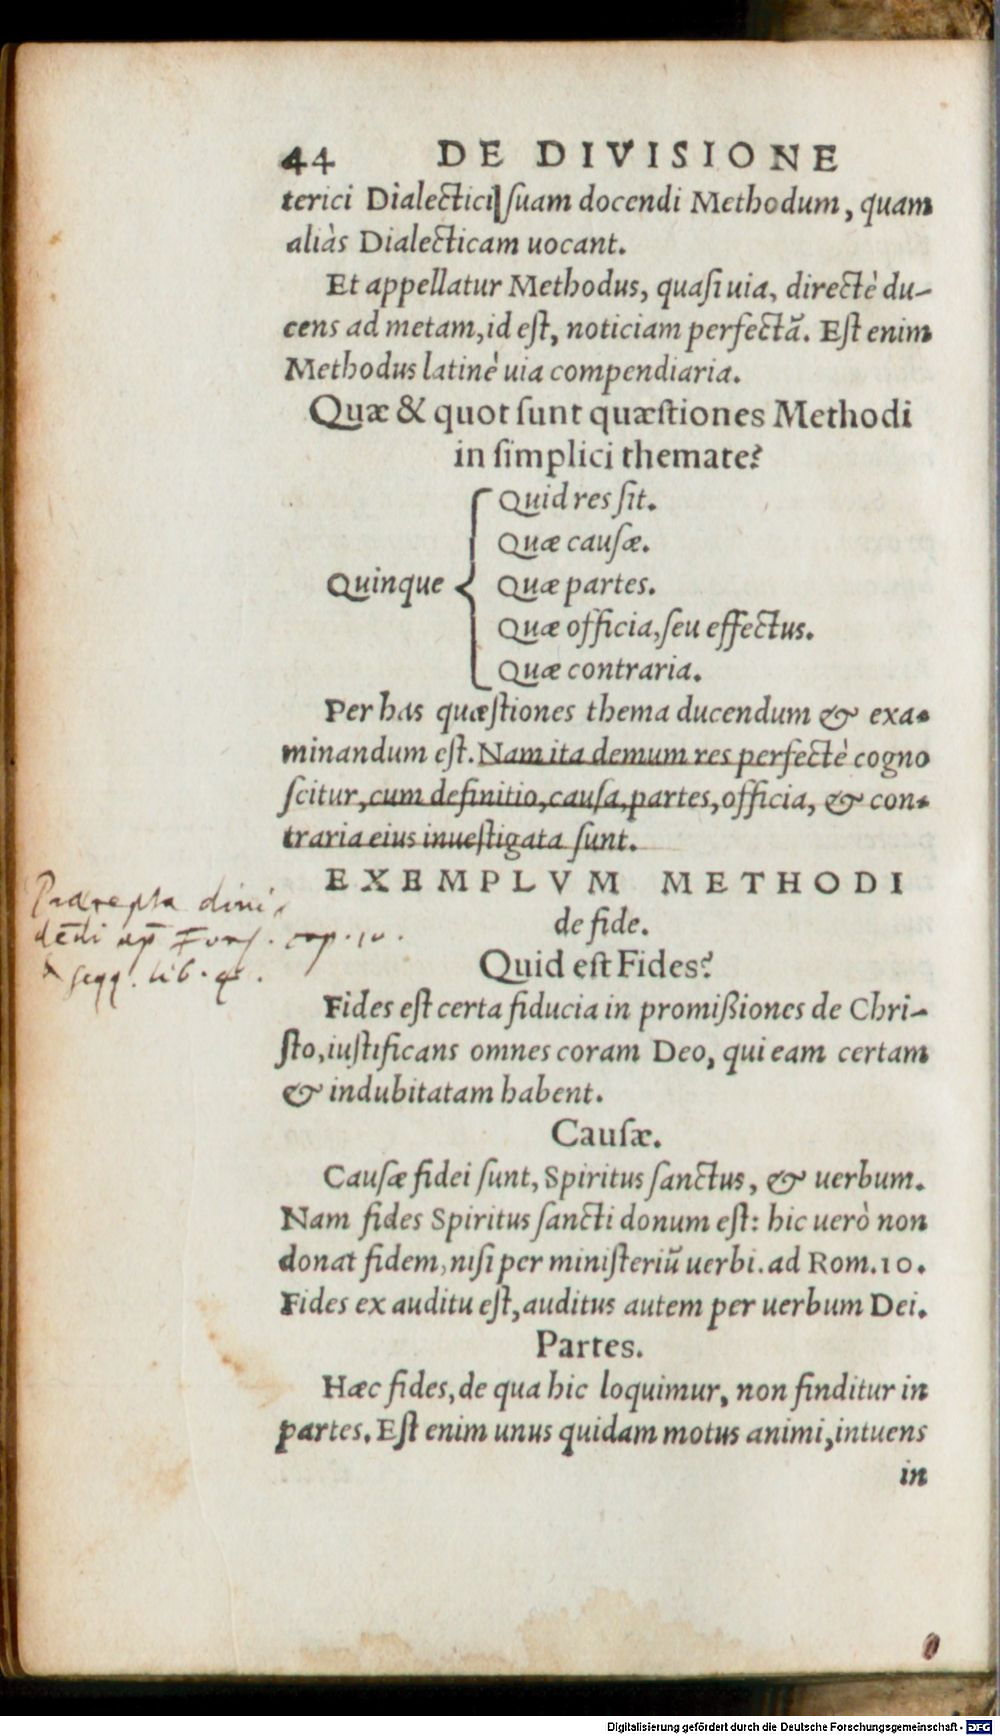 44 DE DIVISIONE
terici Dialectici suam docendi Methodum, quam
aliàs Dialecticam uocant.
Et appellatur Methodus, quasi uia, directè du-
cens ad metam, id est, noticiam perfectā. Est enim
Methodus latinè uia compendiaria.
Quæ & quot sunt quæstiones Methodi
in simplici themate?
Quid res sit.
Quæ causæ.
Quinque Quæ partes.
Quæ officia, seu effectus.
Quæ contraria.
Per has quæstiones thema ducendum & exa-
minandum est. Nam ita demum res perfectè cogno
scitur, cum definitio, causa, partes, officia, & con-
traria eius inuestigata sunt.
EXEMPLVM METHODI
de fide.
Quid est Fides?
Fides est certa fiducia in promißiones de Chri-
sto, iustificans omnes coram Deo, qui eam certam
& indubitatam habent.
Causæ.
Causæ fidei sunt, Spiritus sanctus, & uerbum.
Nam fides Spiritus sancti donum est: hic uerò non
donat fidem, nisi per ministeriū uerbi. ad Rom. 10.
Fides ex auditu est, auditus autem per uerbum Dei.
Partes.
Hæc fides, de qua hic loquimur, non finditur in
partes. Est enim unus quidam motus animi, intuens
in
cap. 10.
lib. 4.
Digitalisierung gefördert durch die Deutsche Forschungsgemeinschaft - DFG